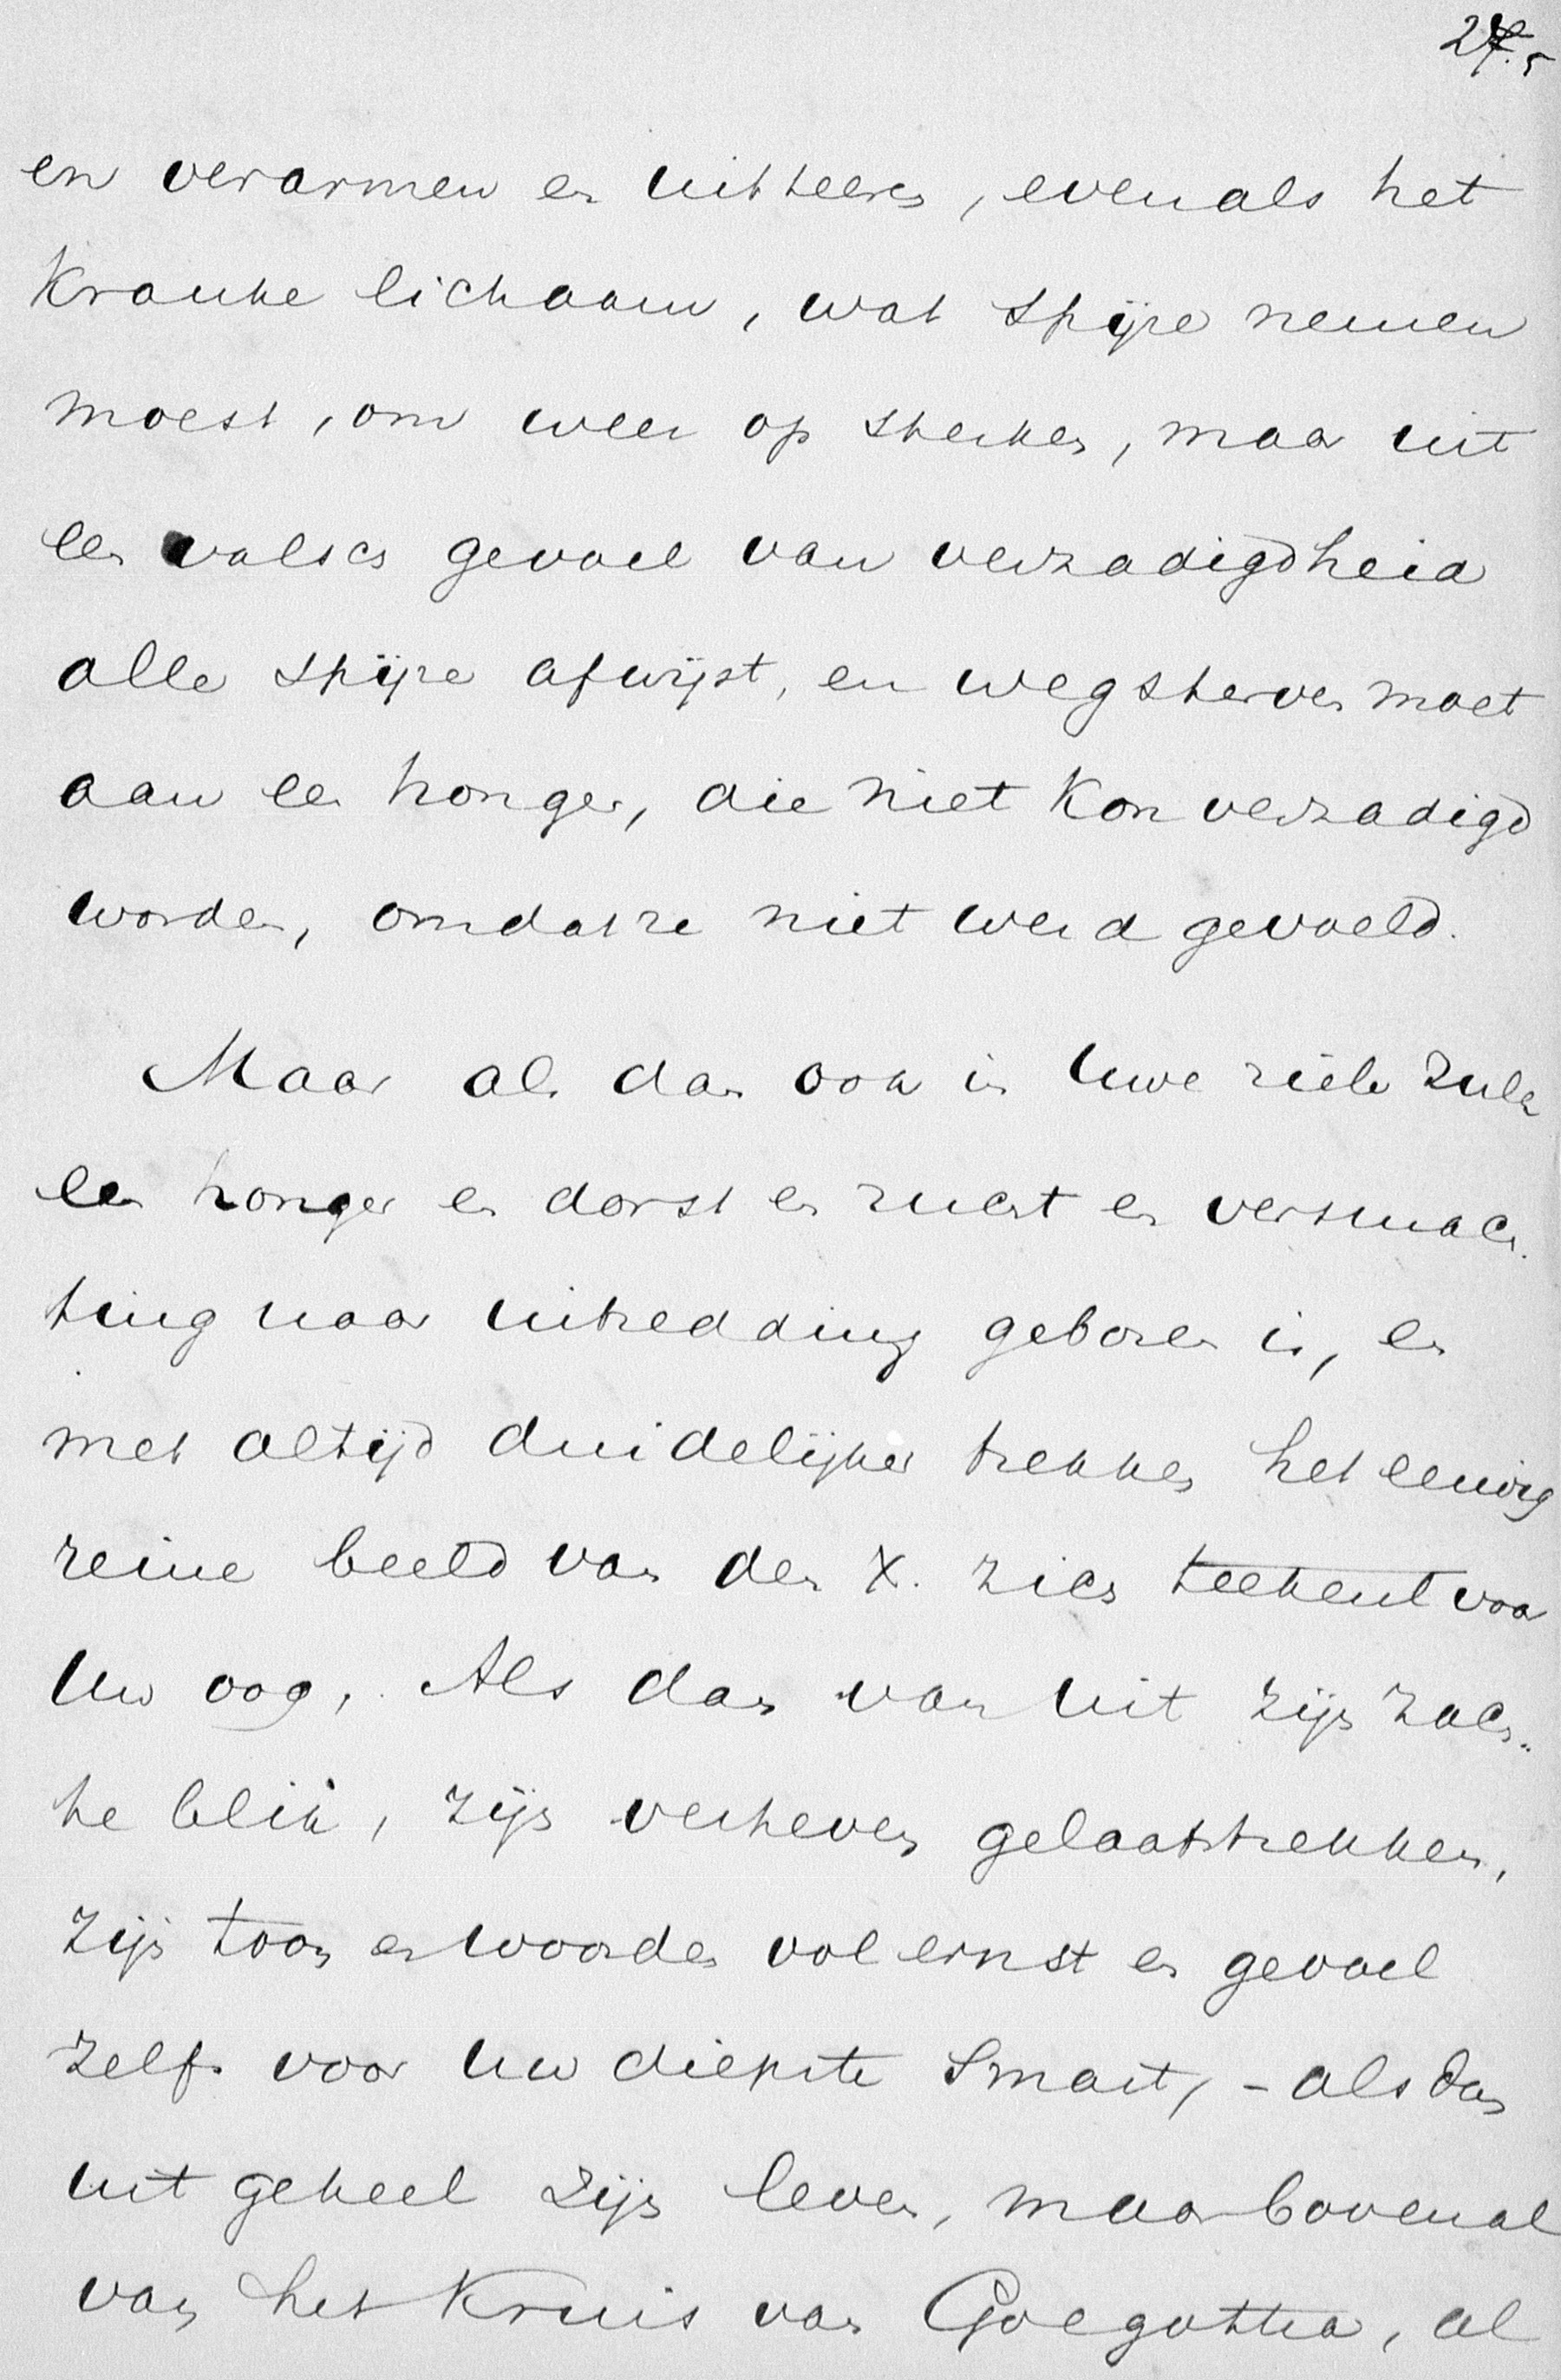 en verarmen en uitteeren, evenals het
kranke lichaam, wat spijze nemen
moest, om weer op sterken, maar uit
een valsch gevoel van verzadigdheid
alle spijze afwijst, en wegsterven moet
aan een honger, die niet kon verzadigd
worden, omdat ze niet werd gevoeld.
Maar als dan ook in Uwe ziele zulk
een honger en dorst en zucht en versmach-
ting naar uitredding geboren is, en
met altijd duidelijker trekken het eeuwig
reine beeld van den X. zich teekent voor
Uw oog, Als dan van uit zijn zach-
te blik, zijn verheven gelaatstrekken,
zijn toon en woorden vol ernst en gevoel
zelfs voor Uw diepste smart, - als dan
uit geheel zijn leven, maar bovenal
van het Kruis van Golgotha, al